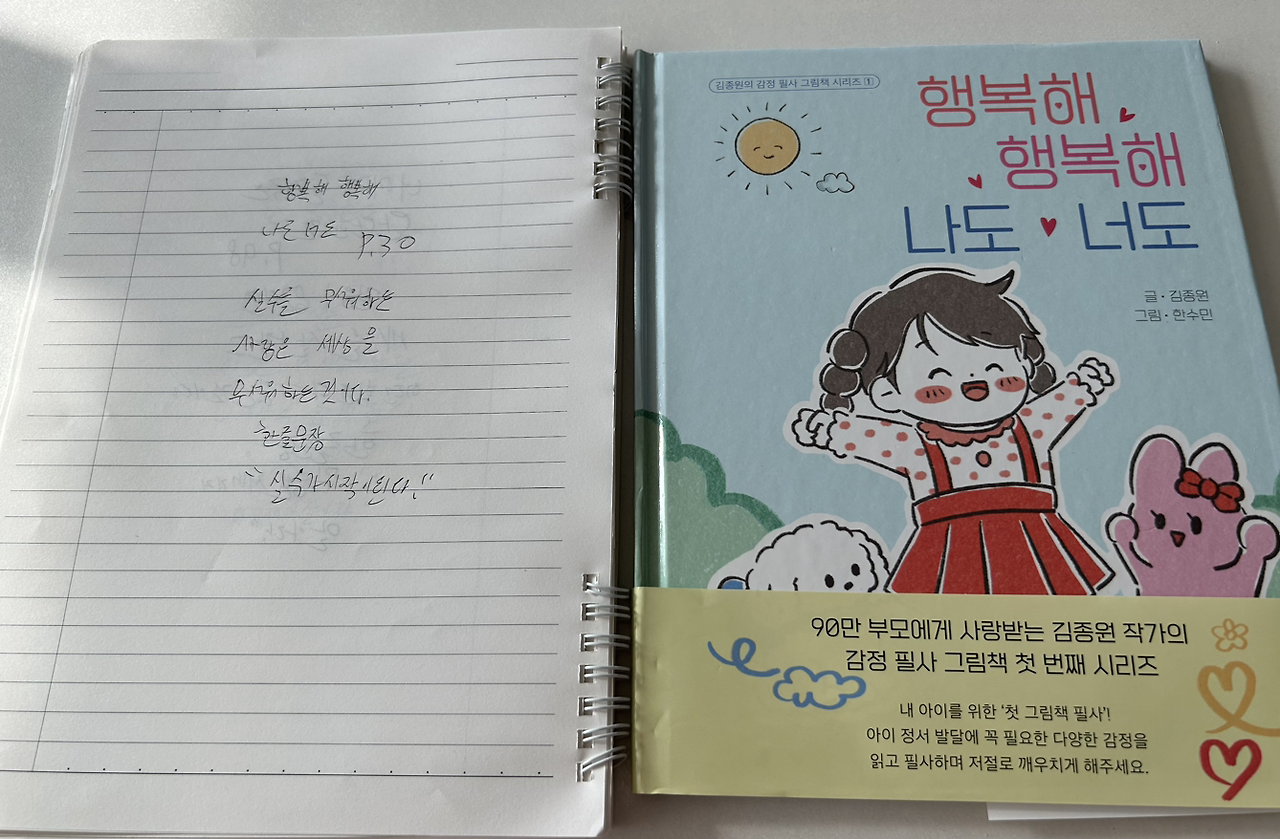 행복해 행복해
나도 너도 P.30
실수를 무서워하는
사람은 세상을
무서워하는것이다.
한줄문장
"실수가시작이된다."
김종원의 감정 필사 그림책 시리즈 1
행복해
행복해
나도 너도
글·김종원
그림·한수민
90만 부모에게 사랑받는 김종원 작가의
감정 필사 그림책 첫 번째 시리즈
내 아이를 위한 '첫 그림책 필사'!
아이 정서 발달에 꼭 필요한 다양한 감정을
읽고 필사하며 저절로 깨우치게 해주세요.